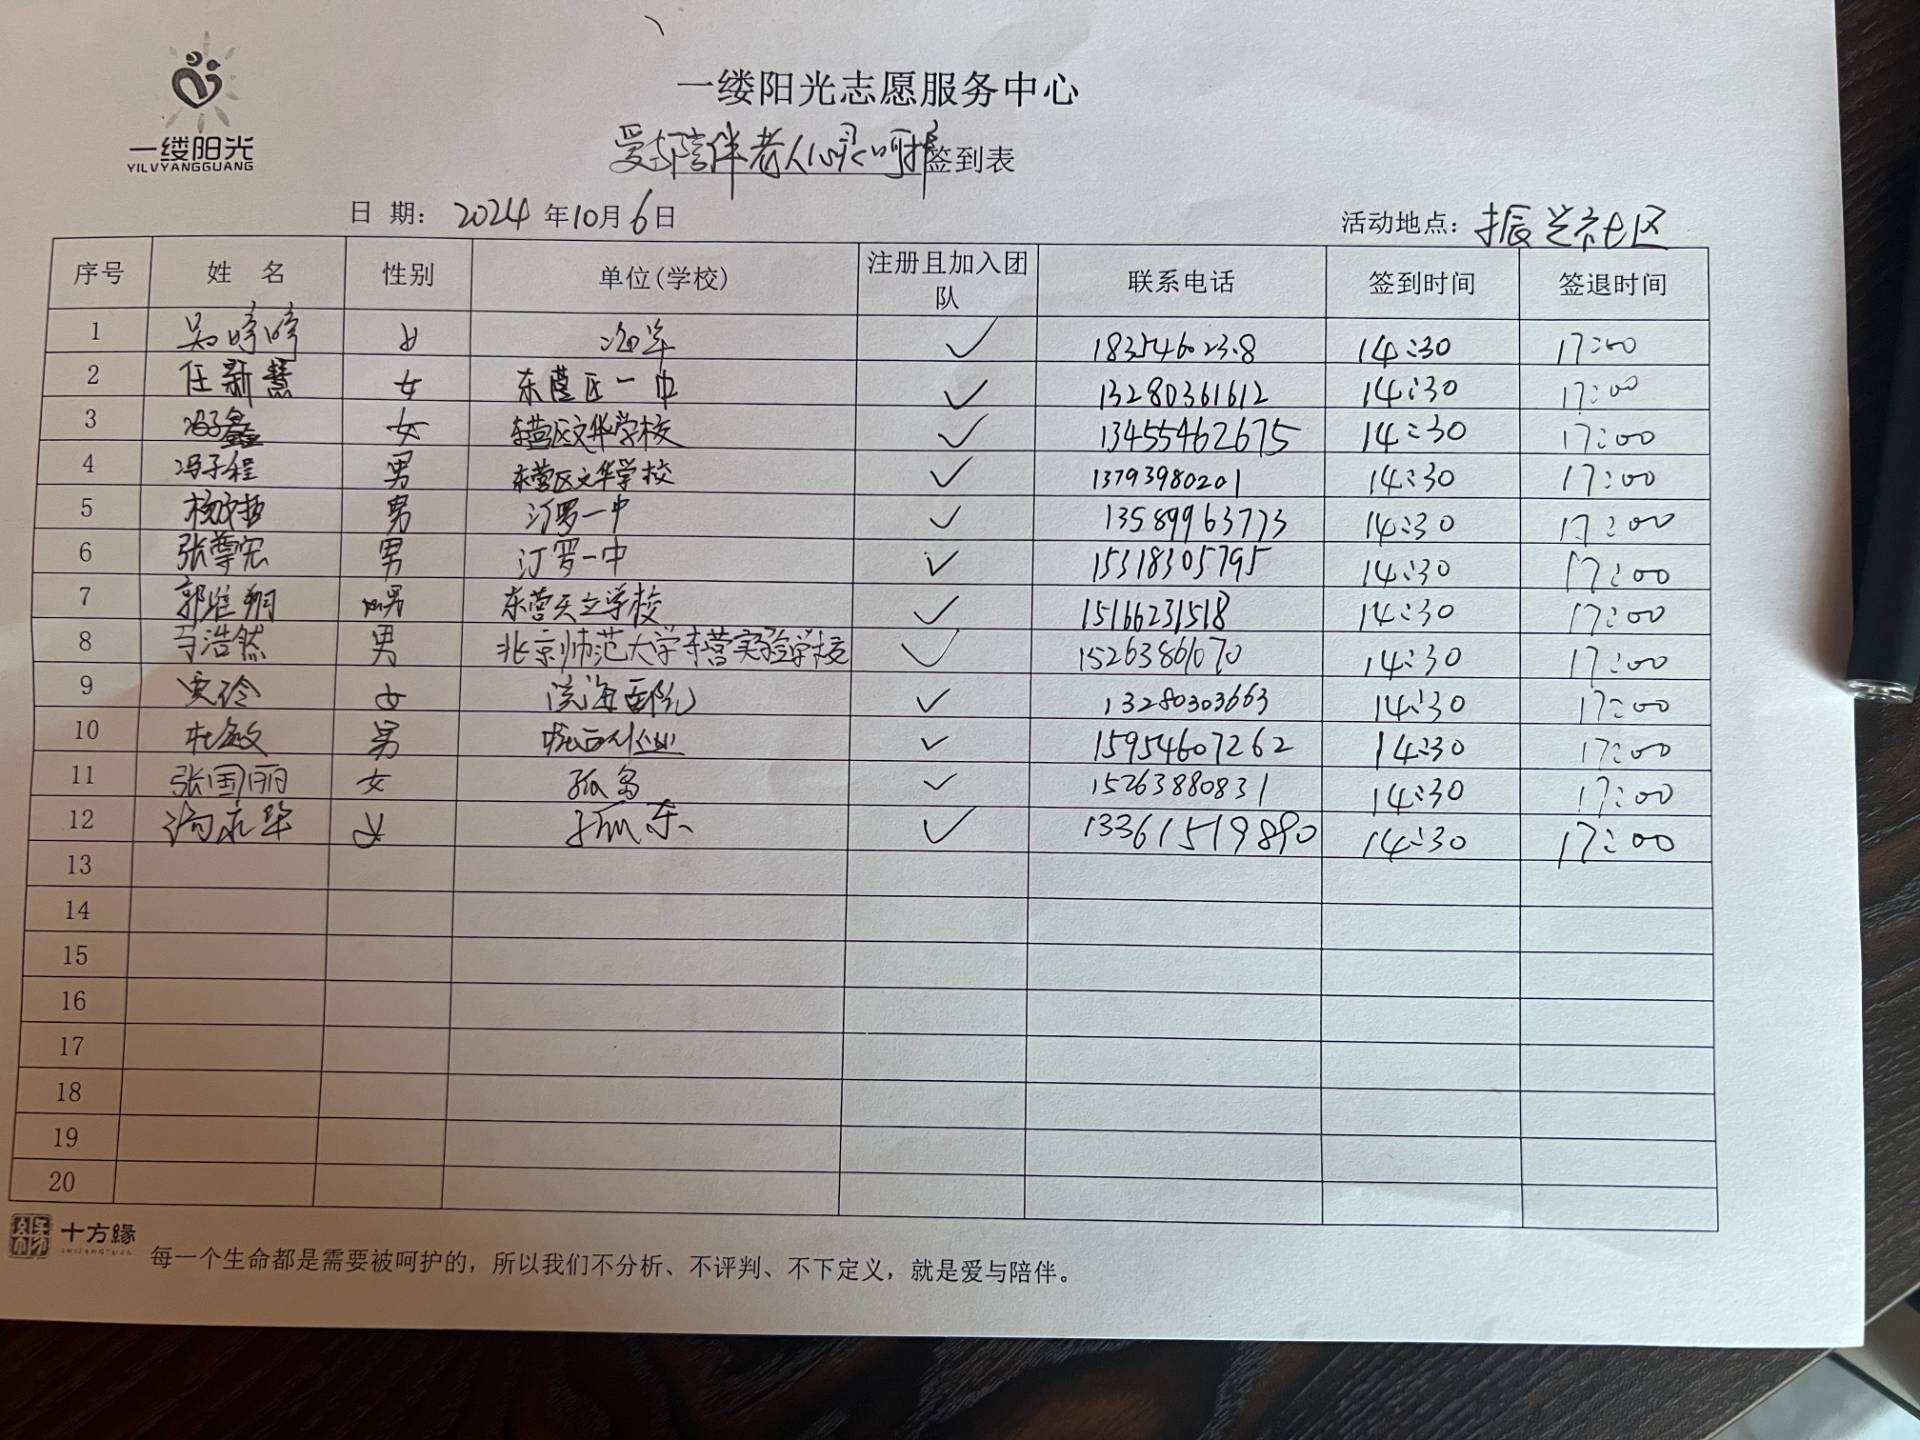 一缕阳光
YILVYANGGUANG
一缕阳光志愿服务中心
爱与陪伴老人心灵呵护签到表
日 期： 2024 年10月6日
活动地点：振兴社区
序号 姓 名 性别 单位(学校) 注册且加入团队 联系电话 签到时间 签退时间
1 吴婷婷 女 ✓ 14:30 17:00
2 任新慧 女 东营区一中 ✓ 13280361612 14:30 17:00
3 女 东营区文华学校 ✓ 13455462675 14:30 17:00
4 冯子程 男 东营区文华学校 ✓ 13793980201 14:30 17:00
5 男 汀罗一中 ✓ 13589963773 14:30 17:00
6 张尊宏 男 汀罗一中 ✓ 15318305795 14:30 17:00
7 男 东营天立学校 ✓ 15166231518 14:30 17:00
8 马浩然 男 北京师范大学东营实验学校 ✓ 15263861070 14:30 17:00
9 女 ✓ 13280303663 14:30 17:00
10 杜敏 男 ✓ 15954607262 14:30 17:00
11 张国丽 女 孤岛 ✓ 15263880831 14:30 17:00
12 女 孤东 ✓ 13361519890 14:30 17:00
13
14
15
16
17
18
19
20
十方缘
每一个生命都是需要被呵护的，所以我们不分析、不评判、不下定义，就是爱与陪伴。